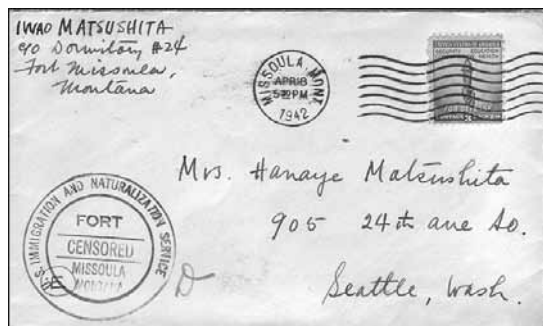 IWAO MATSUSHITA
c/o Dormitory #24
Fort Missoula,
Montana
MISSOULA, MONT.
APR 8
PM
1942
Mrs. Hanaye Matsushita
905 24th ave So.
Seattle, Wash.
U.S. IMMIGRATION AND NATURALIZATION SERVICE
FORT
CENSORED
MISSOULA
MONTANA
D